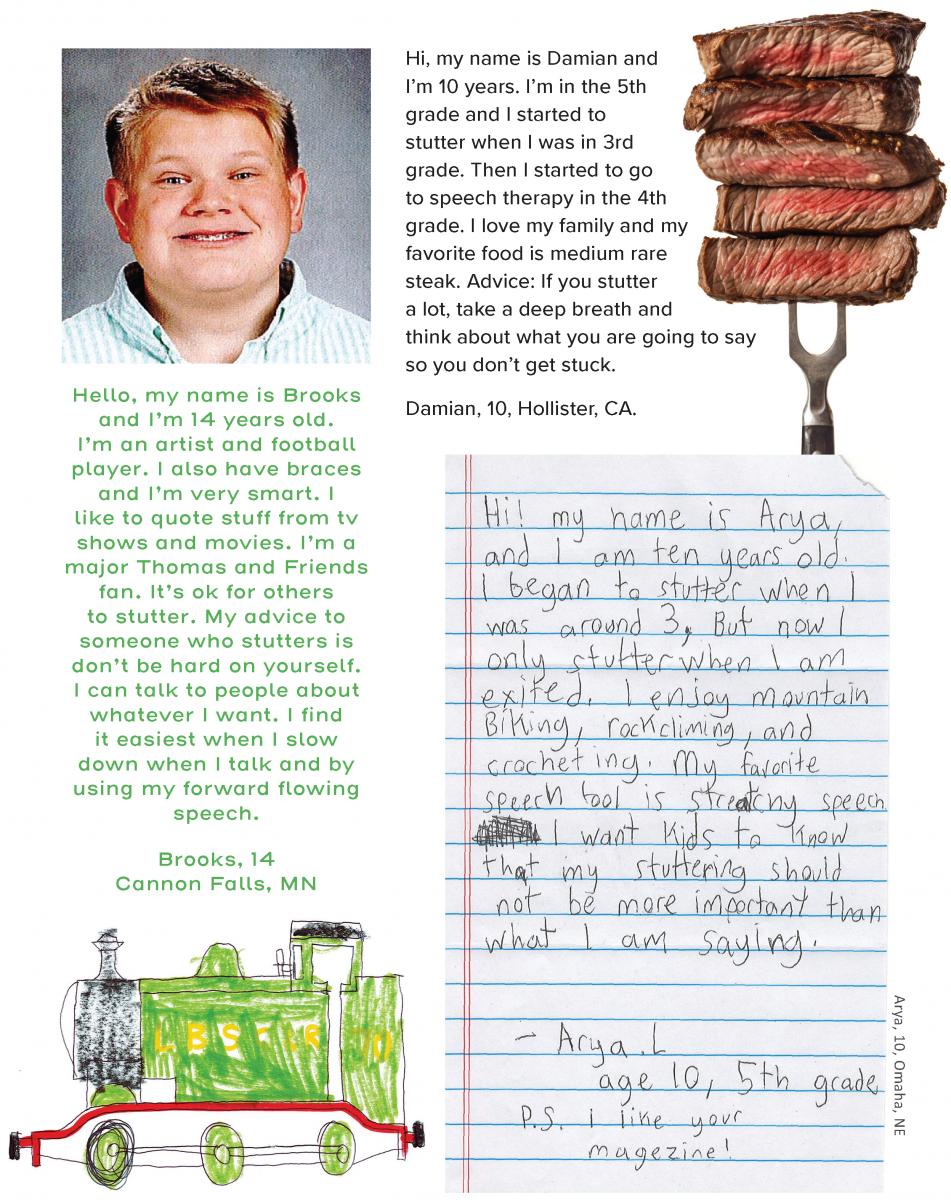 Hi, my name is Damian and
I'm 10 years. I'm in the 5th
grade and I started to
stutter when I was in 3rd
grade. Then I started to go
to speech therapy in the 4th
grade. I love my family and my
favorite food is medium rare
steak. Advice: If you stutter
a lot, take a deep breath and
think about what you are going to say
so you don't get stuck.
Damian, 10, Hollister, CA.
Hello, my name is Brooks
and I'm 14 years old.
I'm an artist and football
player. I also have braces
and I'm very smart. I
like to quote stuff from tv
shows and movies. I'm a
major Thomas and Friends
fan. It's ok for others
to stutter. My advice to
someone who stutters is
don't be hard on yourself.
I can talk to people about
whatever I want. I find
it easiest when I slow
down when I talk and by
using my forward flowing
speech.
Brooks, 14
Cannon Falls, MN
Hi! my name is Arya,
and I am ten years old.
I began to stutter when I
was around 3, But now I
only stutter when I am
exited. I enjoy mountain
Biking, rockcliming, and
crocheting. My favorite
speech tool is streatchy speech
I want Kids to Know
that my stuttering should
not be more important than
what I am saying.
- Arya.L
age 10, 5th grade
P.S. i like your
magezine!
Arya, 10, Omaha, NE